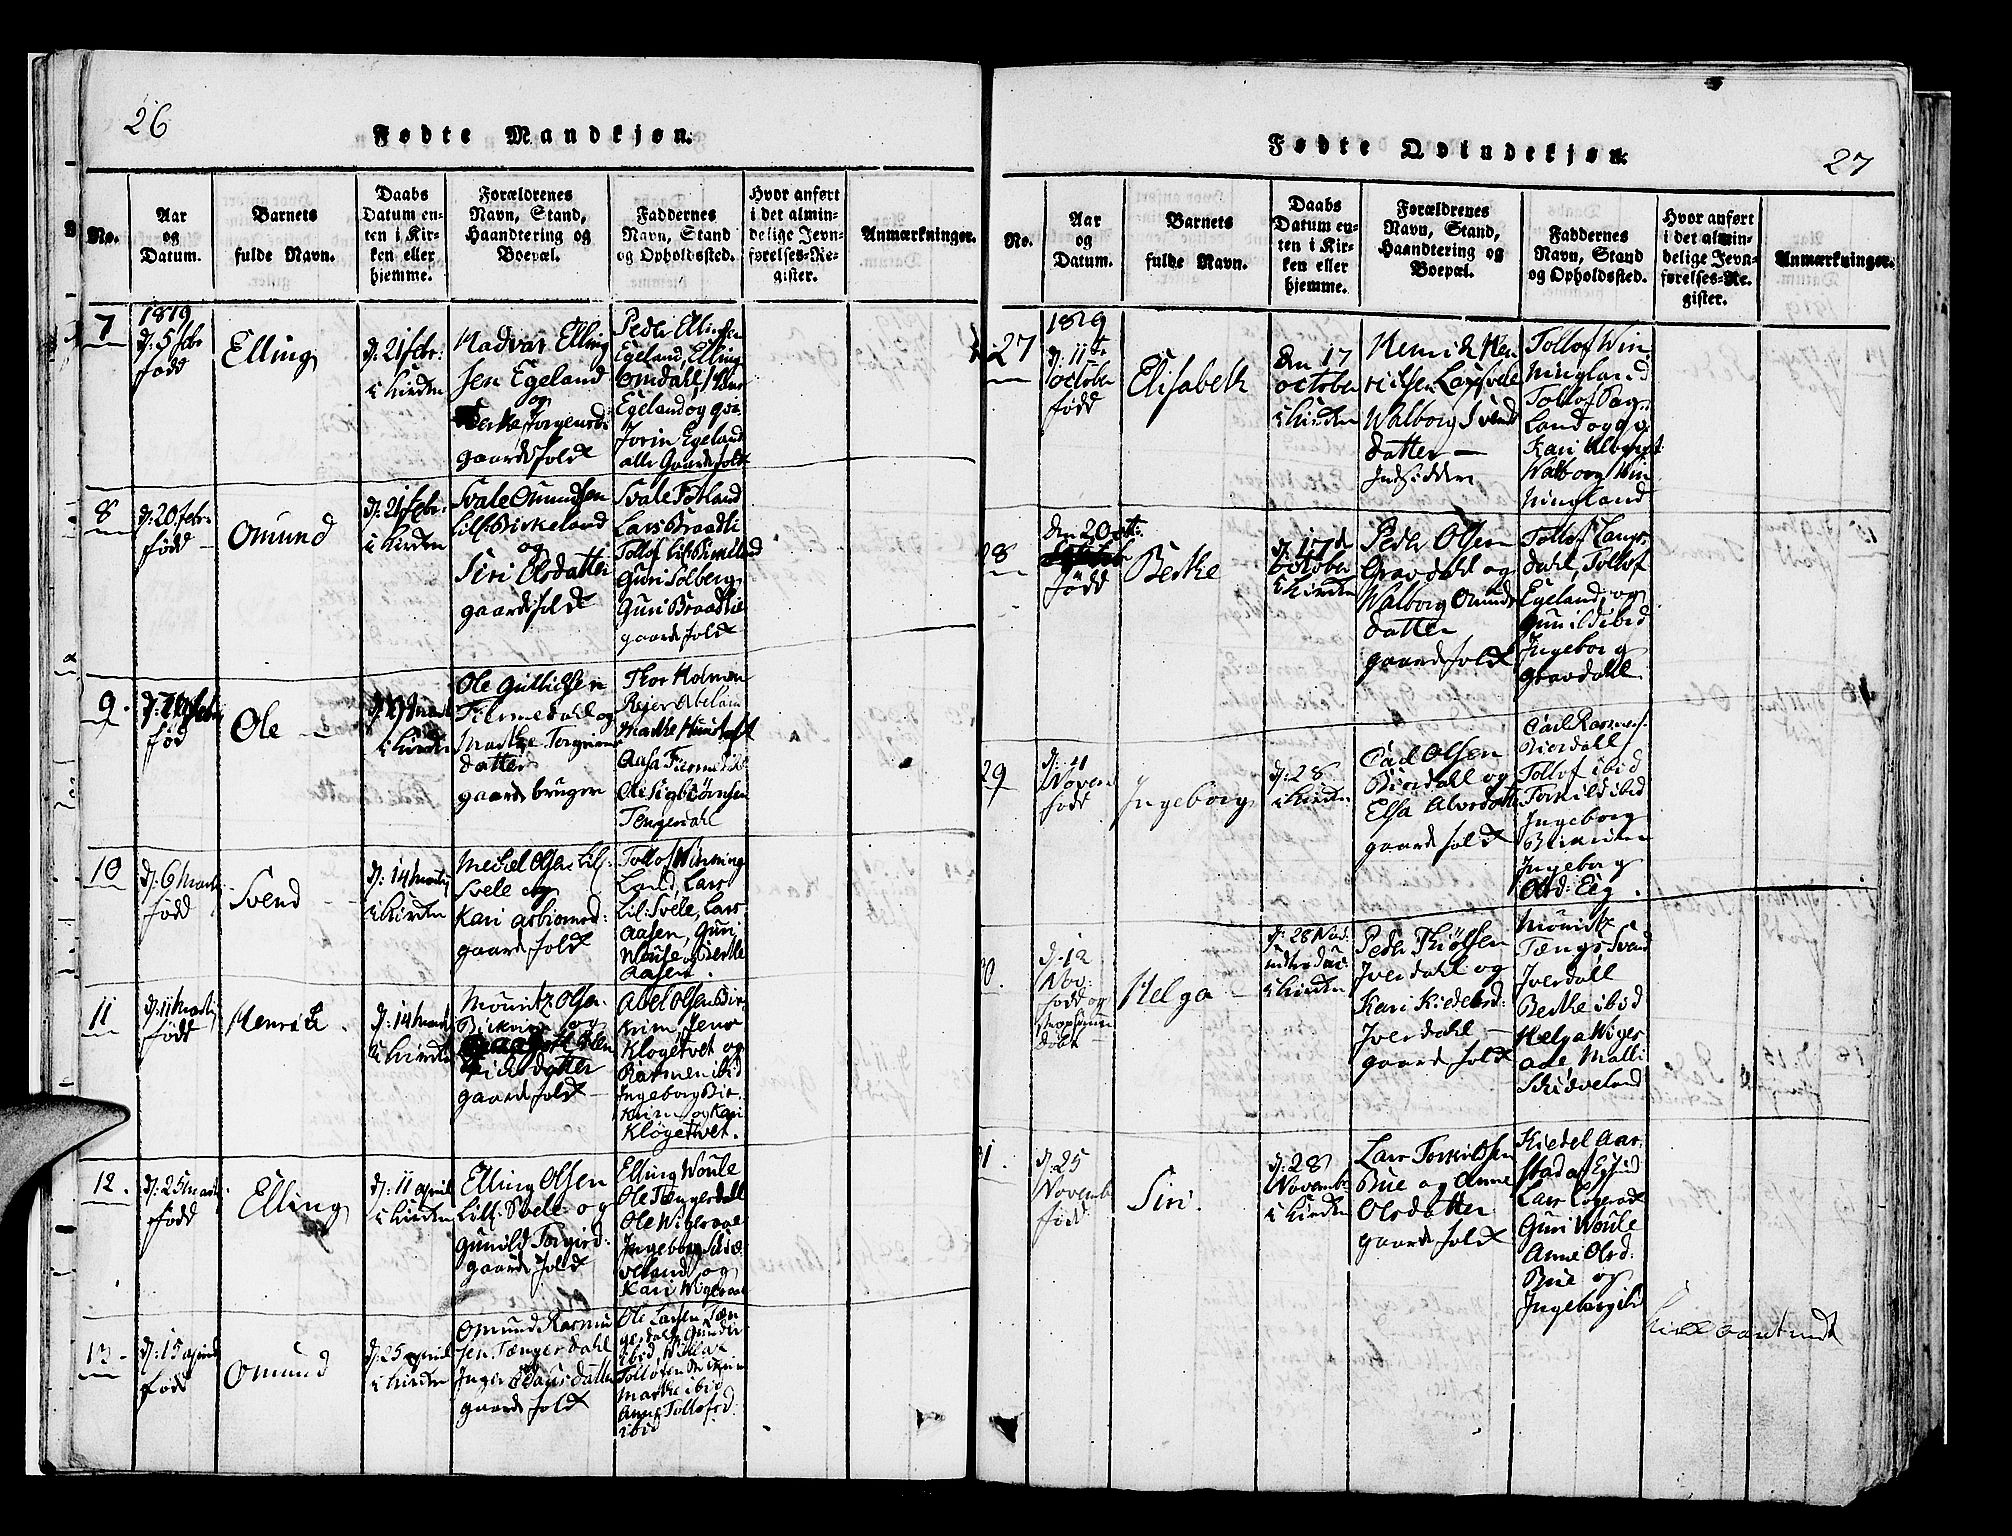 26
Fødte Mandkjøn.
No.
Aar
og
Datum.
Barnets
fulde Navn.
Daabs
Datum en-
ten i Kir-
ken eller
hjemme.
Forældrenes
Navn, Stand,
Haandtering og
Boepæl.
Faddernes
Navn, Stand
og Opholdssted.
Hvor anført
i det almin-
delige Jevn-
førelses-Re-
gister.
Anmærkninger.
7
1819
d: 5 febr
född
Elling
d: 21 febr:
i Kirken
Elling
sen Egeland
og
Berthe Jorgensd:
gaardsfolk
Peder Ellingsen
Egeland, Elling
Omdahl,
Egeland og qvi:
Jorin Egeland
alle Gaardsfolk
8
d: 20 febr:
född
Omund
d: 21 febr:
i Kirken
Svale Omundsen
Lil: Birkeland
og
Siri Olsdatter
gaardsfolk
Svale Förland
Lars Braadlie
Tollof Lil:
Guri Solberg
Guri Braadlie
gaardsfolk
9.
föd
Ole
i Kirken
Ole
og
Marthe
datter
gaardbruger
Thor Holmen
Reier Abeland
Marthe
Aasa
Ole Sigbiörnsen
Tengesdahl
10
d: 6 Martij
född
Svend
d: 14 Martij
i Kirken
Mickel Olsen Lil:
Svele og
Kari Asbiörnsd:
gaardsfolk
Tollof Winning
Land, Lars
Lil: Svele, Lars
Aasen, Guri
Woule og Berthe
Aasen.
11
d: 11 Martij
född
Henrik.
d: 14 Martij
i Kirken
Mouritz Olsen
og
datter
gaardsfolk
Abel Olsen Bir-
krim, Jens
Klogetvet og
Rasmen ibid
Ingeborg Bir-
krim og Kari
Klögetvet.
12.
d: 25 Martij
född
Elling
d: 11 april
i Kirken
Elling Olsen
Lill: Svele og
Gunild Torgiersd:
gaardsfolk
Elling Woule
Ole Tengesdall
Ole Wigesaae
Ingeborg Skiæ
veland og
Kari Wigesaae
13
d: 15 april
född
Omund
d: 25 april
i Kirken
Omund Rasmu
sen Tængesdahl
Inger datter
gaardsfolk
Ole Larsen Tæn
gesdahl, Gunder
ibid,
Tollöfsen
Marthe ibid
Anne Tollofsd:
ibid
Fødte Qvindekjøn.
27
No.
Aar
og
Datum.
Barnets
fulde Navn.
Daabs
Datum en-
ten i Kir-
ken eller
hjemme.
Forældrenes
Navn, Stand,
Haandtering og
Boepæl.
Faddernes
Navn, Stand
og Opholdssted.
Hvor anført
i det almin-
delige Jevn-
førelses-Re-
gister.
Anmærkninger.
27
1819
d: 11te
october
född
Elisabeth
den 17
october
i Kirken
Henrik Hen
richsen Lillesvele
Walborg Svends
datter —
Indsidder
Tollof Win
ningland
Tollof
Land og
Kari
Walborg Win
ningland
28
den 2 Oct:
född
Berthe
d: 17de
October
i Kirken
Peder Olsen
Gravdahl og
Walborg Omunds
datter
gaardsfolk
Tollof Langs
dahl, Tollof
Egeland, og
Gunild ibid
Ingeborg
Gravdahl
29
d: 11
Novem
född
Ingeborg
d: 28
i Kirken
Carl Olsen
Bierdall og
Elsa Alvsdatter
gaardsfolk
Carl Rasmus:
Bierdall
Tollof ibid
Torkild ibid
Ingeborg
Birkrim
Ingeborg
Olsd: Eeg.
30.
d: 12
Nov:
född og
döbt
Helga
d: 28 Nov:
i Kirken
Peder Thiölsen
Iverdahl og
Kari Kieldsd:
Iverdahl —
gaardsfolk
Mouritz
Tængs, Svend
Iverdall
Berthe ibid
Helga Wiges
aae, Malli
Skiæveland
31.
d: 25
Novemb
född
Siri.
d: 28
Novemb:
i Kirken
Lars Torkildsen
Bue og Anne
Olsdatter
gaardsfolk
Kiedel Aar
stad af Egsund
Lars
Guri Woule
Anne Olsd:
Bue og
Ingeborg ibid